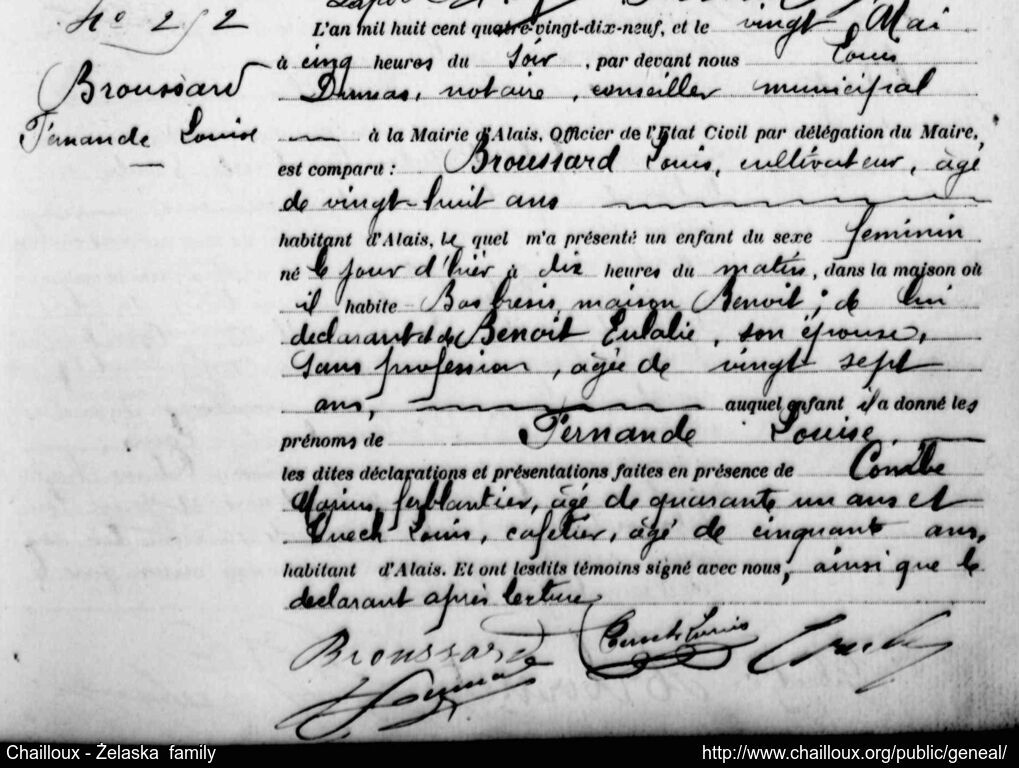 N° 252
L'an mil huit cent quatre-vingt-dix-neuf, et le vingt Mai
à cinq heures du soir, par devant nous Louis
Broussard
Dumas, notaire, conseiller municipal
Fernande Louise
à la Mairie d'Alais, Officier de l'Etat Civil par délégation du Maire,
est comparu : Broussard Louis, cultivateur, âgé
de vingt-huit ans
habitant d'Alais, le quel m'a présenté un enfant du sexe feminin
né le jour d'hier à dix heures du matin, dans la maison où
il habite maison Benoit ; de lui
declarant et de Benoit Eulalie, son épouse,
sans profession, âgée de vingt sept
ans, auquel enfant il a donné les
prénoms de Fernande Louise.
les dites déclarations et présentations faites en présence de Combe
Marius, ferblantier, âgé de quarante un ans et
Louis, cafetier, âgé de cinquante ans,
habitant d'Alais. Et ont lesdits témoins signé avec nous, ainsi que le
declarant après lecture.
Broussard Louis
Chailloux - Želaska family
http://www.chailloux.org/public/geneal/